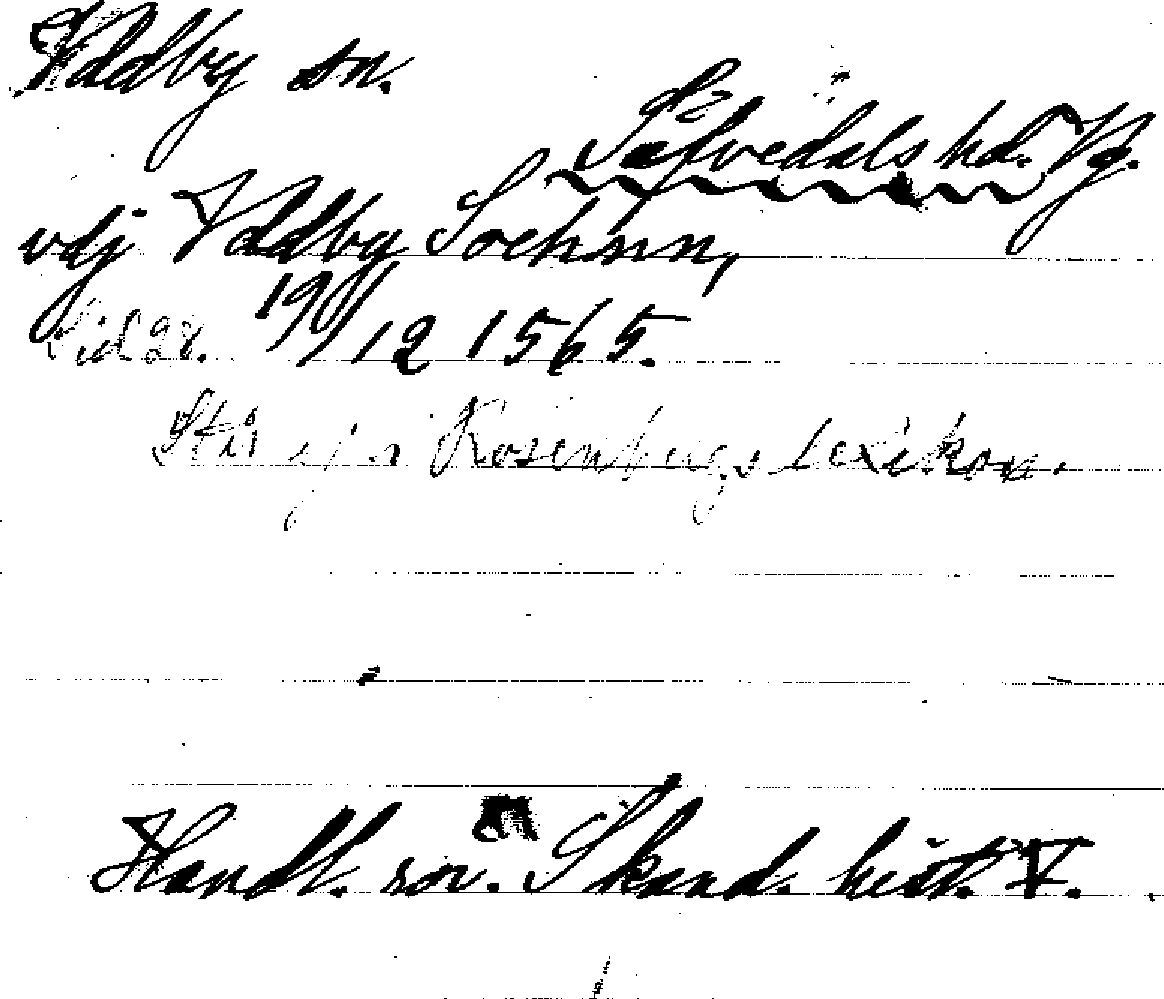 Valdby sn.
Säfvedals hd. Vg.
vdj Valdby Sochnn,
Sid 28. 19/12 1565.
Står ej i Rosenbergs lexikon.
Handl. rör. Skand. hist. V.